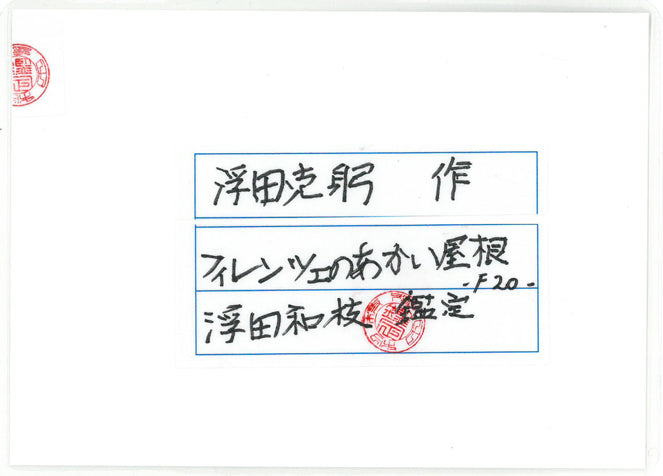 浮田克躬 作
フィレンツェのあかい屋根
-F20-
浮田和枝 鑑定